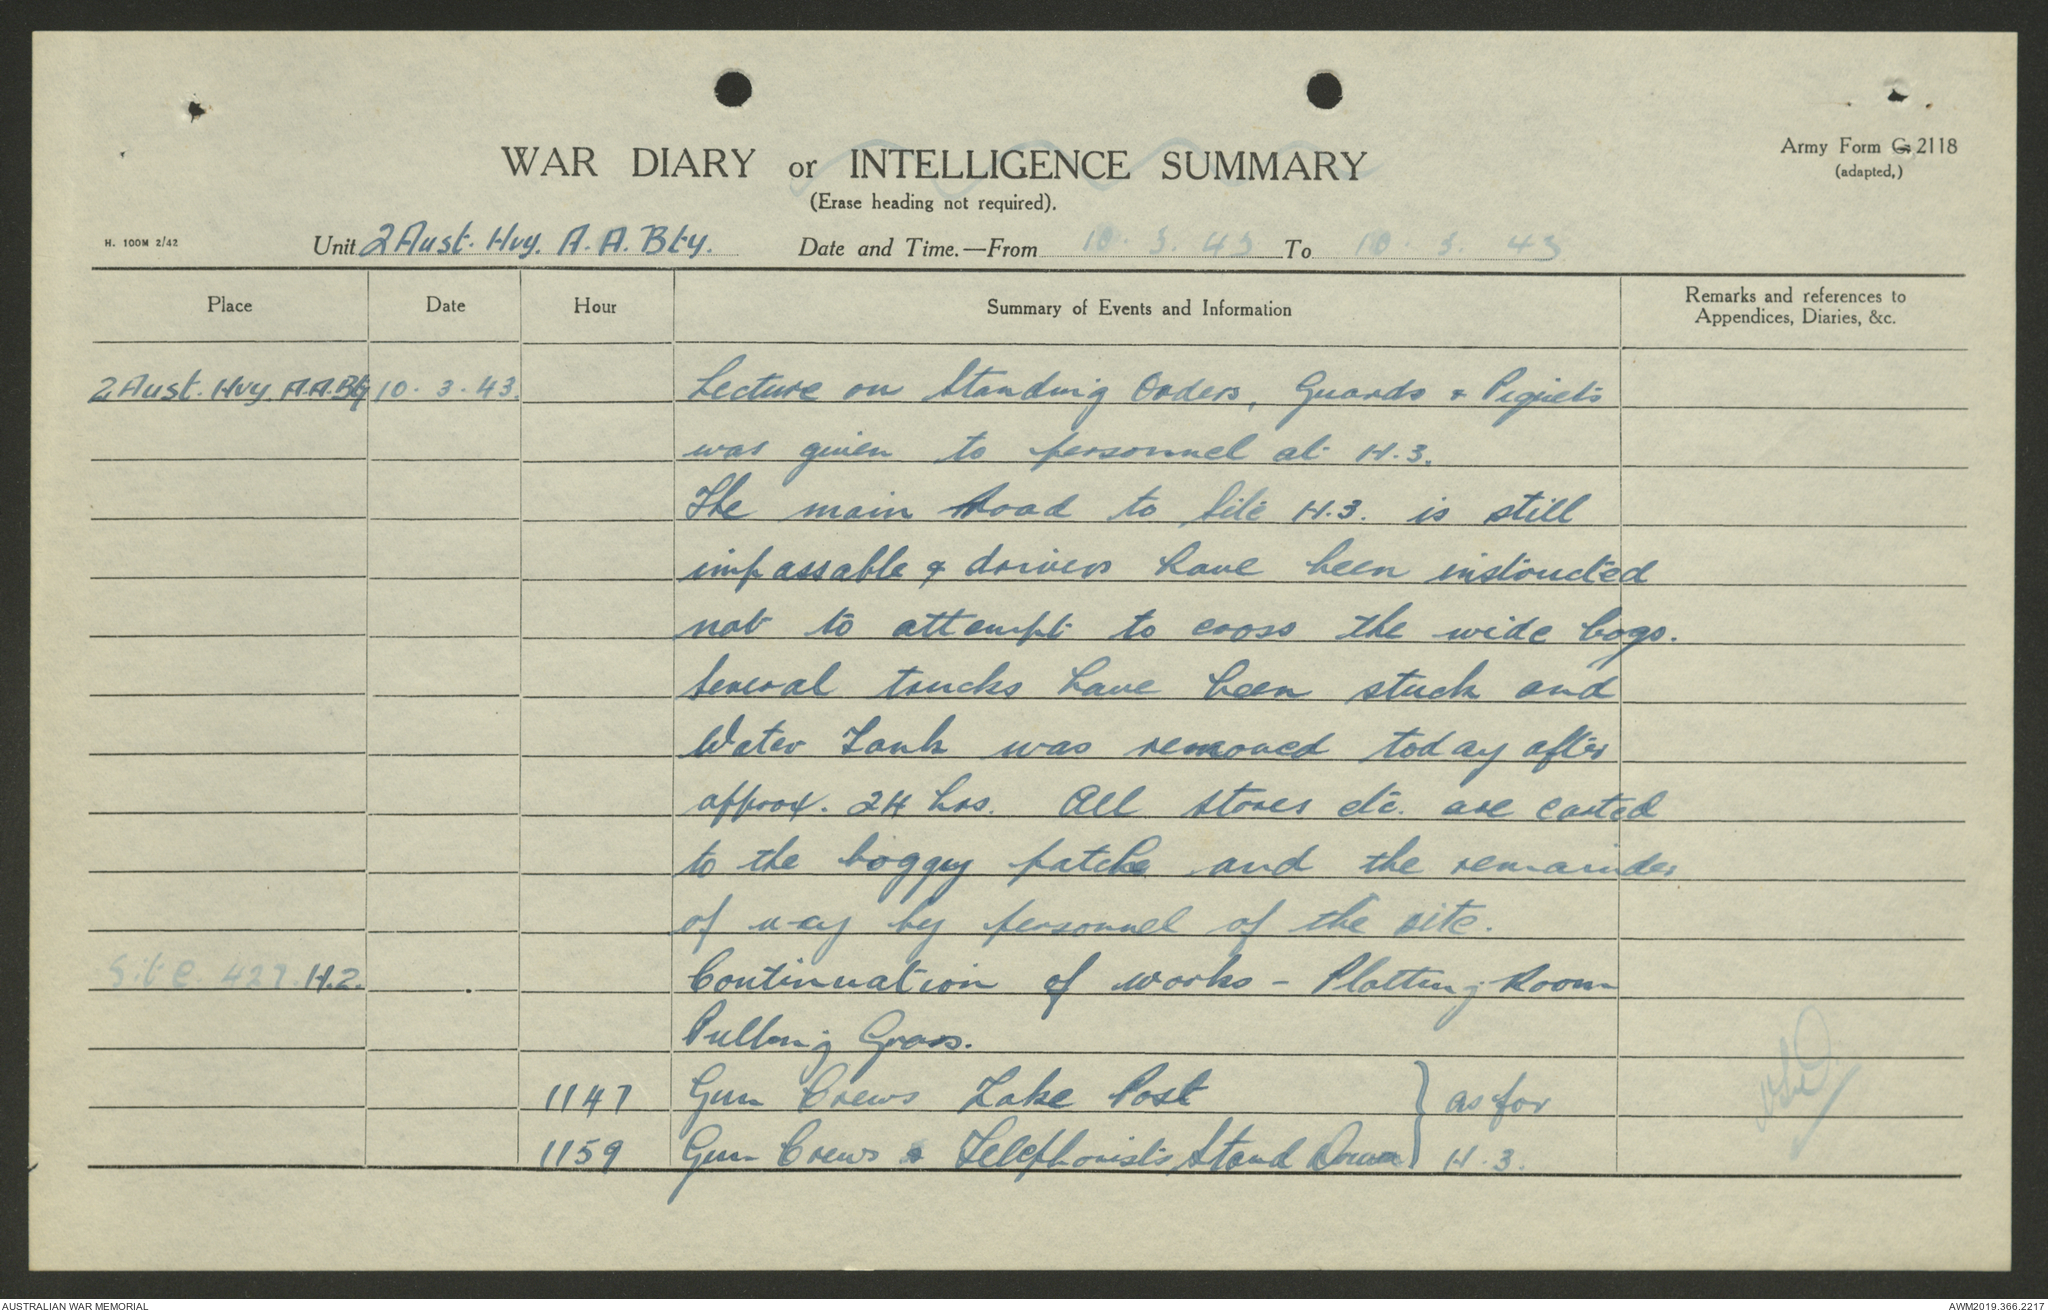 WAR DIARY or INTELLIGENCE SUMMARY
Army Form G 2118
(adapted.)
(Erase heading not required).
H. 100M 2/42
Unit 2 Aust. Hvy. A.A. Bty. Date and Time.—From 10. 3. 43 To 10. 3. 43
Place Date Hour Summary of Events and Information Remarks and references to
Appendices, Diaries, &c.
2 Aust. Hvy. A.A. Bty 10. 3. 43. Lecture on Standing Orders, Guards & Piquets
was given to personnel at H.3.
The main Road to Site H.3. is still
impassable & drivers have been instructed
not to attempt to cross the wide bogs.
Several trucks have been stuck and
Water Tank was removed today after
approx. 24 hrs. All stores etc. are carted
to the boggy patche and the remainder
of way by personnel of the site.
Site 427 H.2. Continuation of works - Plotting Room
Pulling Grass.
1147 Gun Crews Take Post } as for
1159 Gun Crews & Telephonists Stand Down H.3.
AUSTRALIAN WAR MEMORIAL
AWM2019.366.2217